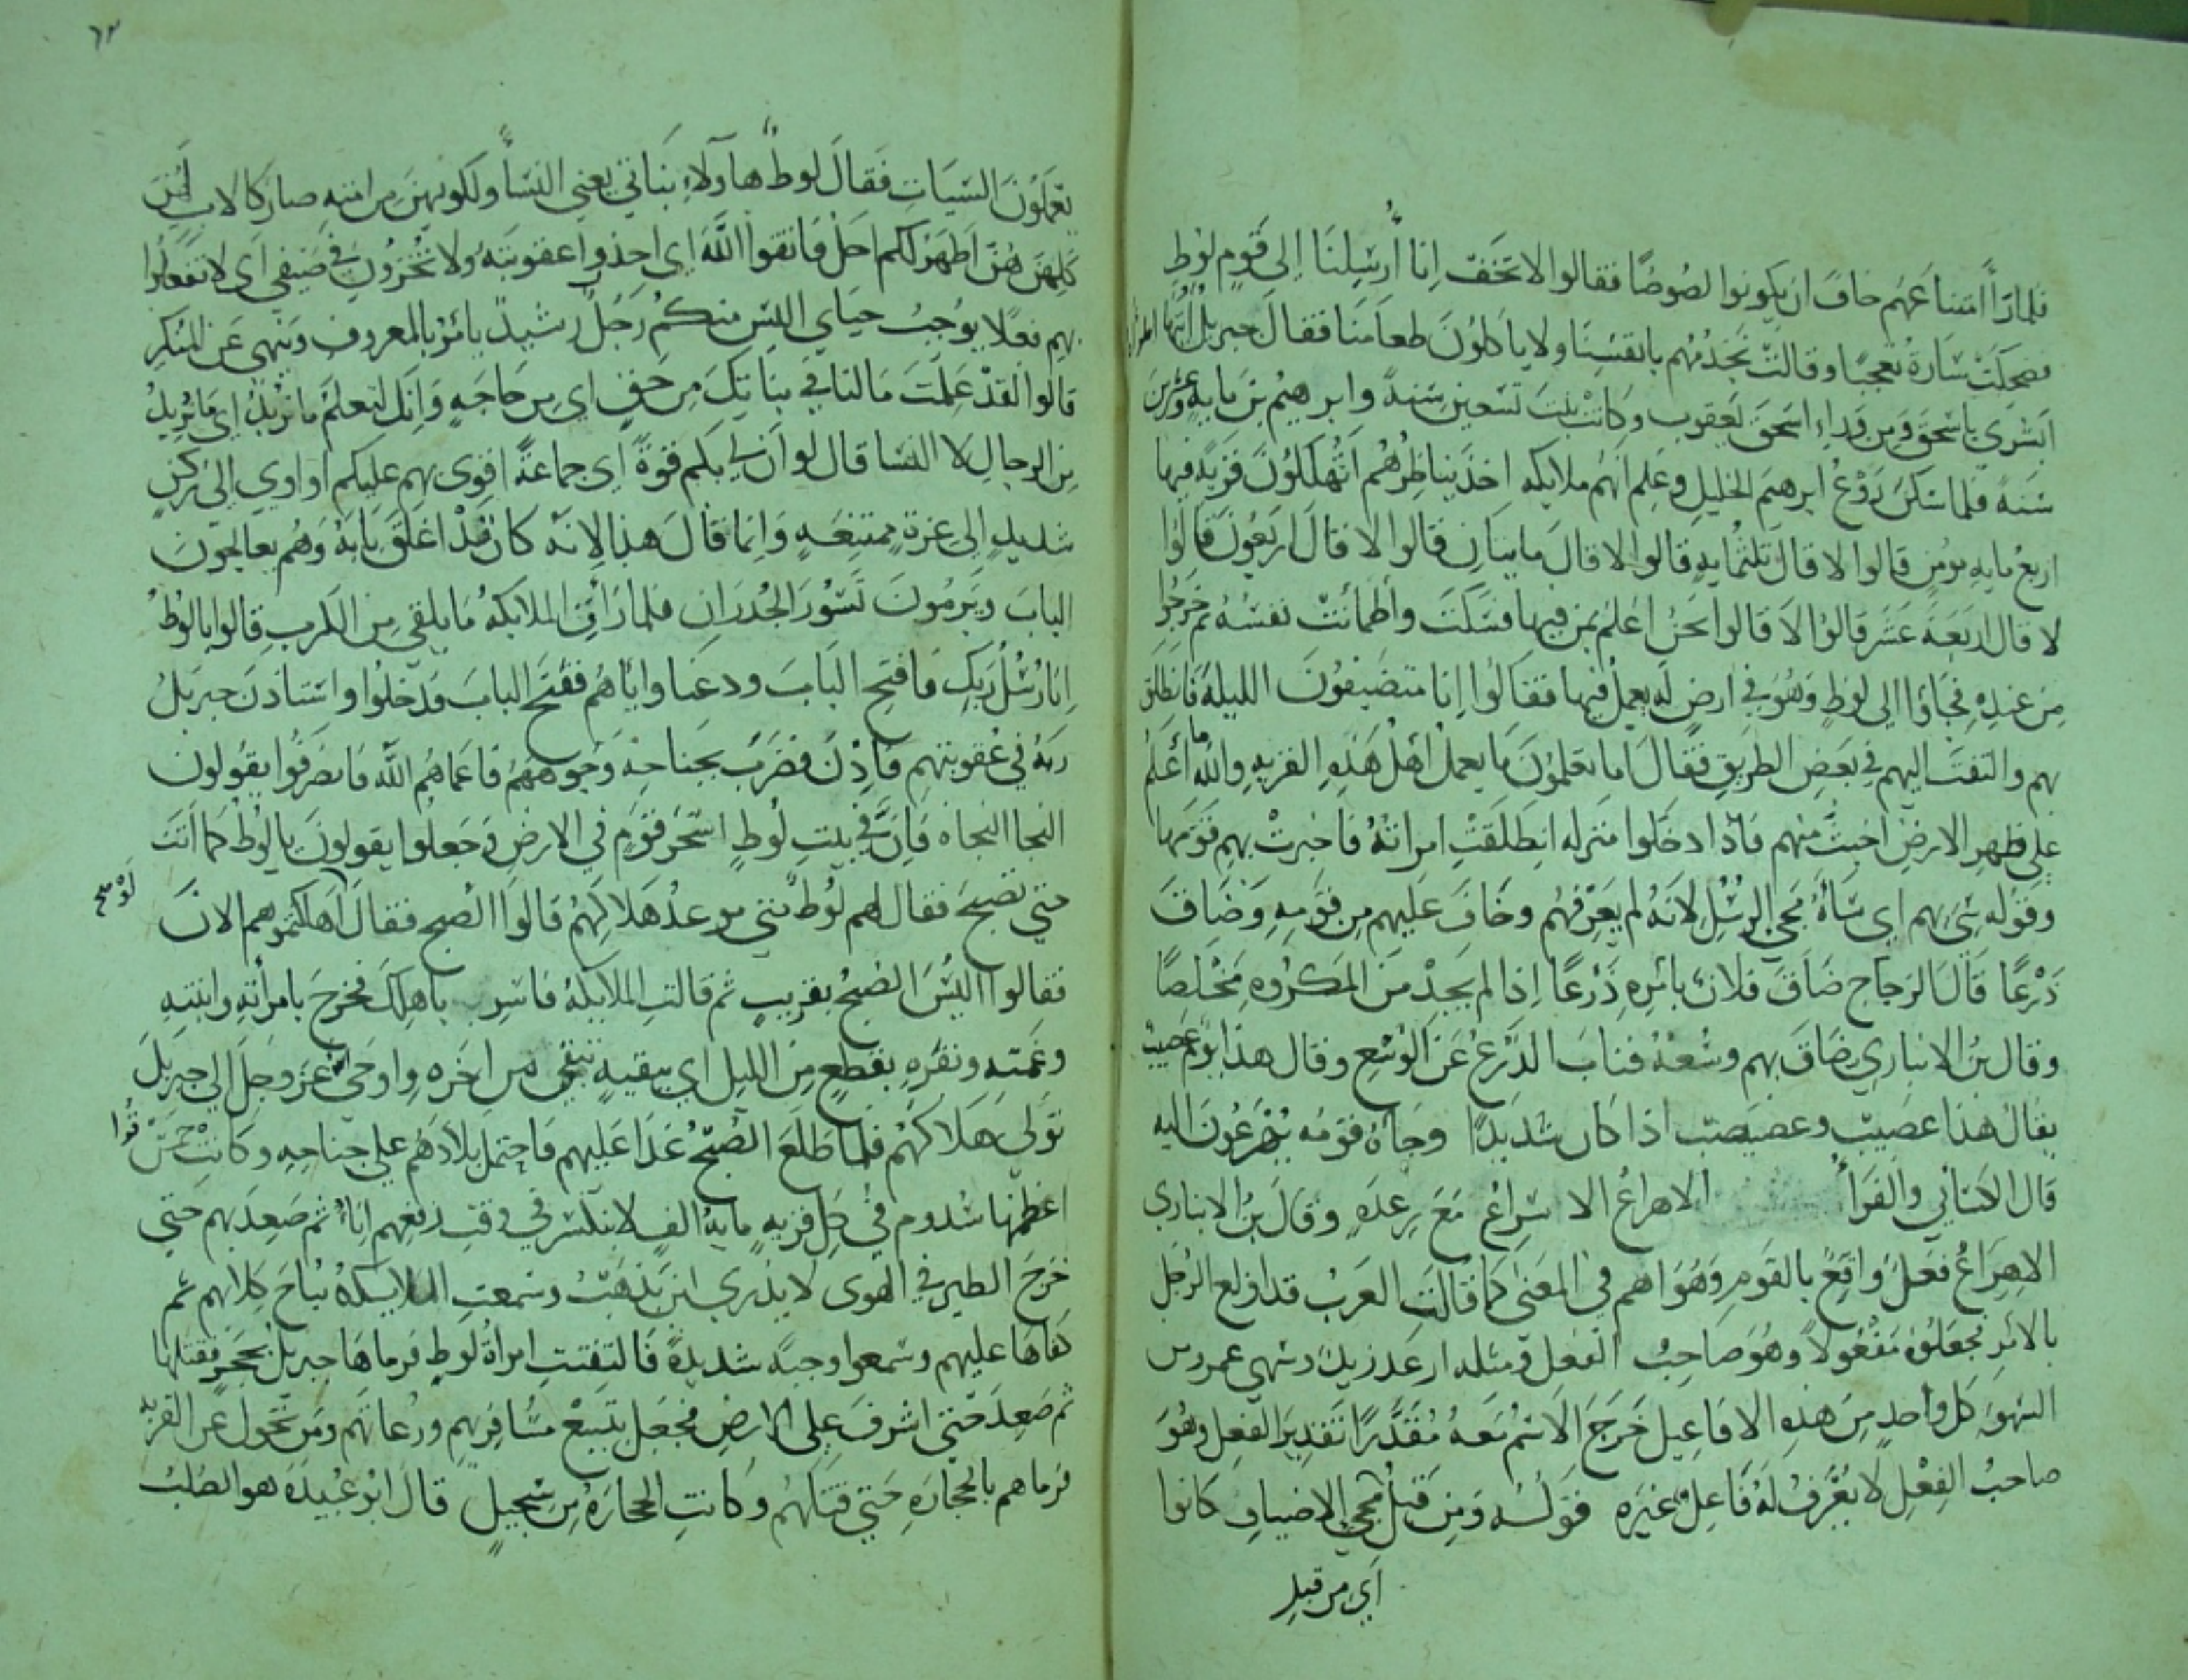 فلما رأا امتناعهم خاف ان يكونوا لصوصًا فقالوا لا تخف إنا أرسلنا إلى قوم لوط
فضحكت سارة تعجبًا وقالت نخدمهم بانفسنا ولا ياكلون طعامنا فقال جبريل أيتها
ابشري باسحق ومن وراء اسحق يعقوب وكانت بنت تسعين سنة وابرهيم بن مايه وعشرين
سنة فلما سكن روع ابرهيم الخليل وعلم انهم ملايكه اخذ يناظرهم اتهلكون قرية فيها
اربع مايه مومن قالوا لا قال ثلثمايه قالوا لا قال مايتان قالوا لا قال اربعون قالوا
لا قال اربعة عشر قالوا لا قالوا نحن اعلم بمن فيها فسكت واطمأنت نفسه ثم خرجوا
من عنده فجاؤا الى لوط وهو في ارض له يعمل فيها فقالوا إنا متضيفون الليلة فانطلق
بهم والتفت اليهم في بعض الطريق فقال اما تعلمون ما يعمل اهل هذه القرية والله ما أعلم
على ظهر الارض اخبث منهم فاذا دخلوا منزله انطلقت امراته فاخبرت بهم قومها
وقوله سيء بهم اي ساه مجي الرسل لانه لم يعرفهم وخاف عليهم من قومه وضاق
ذرعًا قال الزجاج ضاق فلان بأمره ذرعًا إذا لم يجد من المكروه مخلصًا
وقال بن الانباري ضاق بهم وسعه فناب الذرع عن الوسع وقال هذا يوم عصيب
يقال هذا عصيب وعصبصب اذا كان شديدًا وجاه قومه يهرعون اليه
قال الكسائي والفرأ الاهراع الاسراع مع رعده وقال بن الانباري
الاهراع فعل واقع بالقوم وهو اهم في المعنى كما قالت العرب قد اولع الرجل
بالامر فجعلوه مفعولًا وهو صاحب الفعل ومثله ارعد زيد وسهى عمرو من
السهو كل واحد من هذه الافاعيل خرج الاسم معه مقدرًا تقدير الفعل وهو
صاحب الفعل لا يعرف له فاعل غيره قوله ومن قبل مجي الاضياف كانوا
أي من قبل
٦٢
يعملون السيات فقال لوط هاولاء بناتي يعني النسأ ولكونهن من امته صار كالاب لهن
كلهن هن اطهر لكم احل فاتقوا الله اي احذروا عقوبته ولا تخزون في ضيفي اي لا تفعلوا
بهم فعلا يوجب حياي اليس منكم رجل رشيد يامر بالمعروف وينهى عن المنكر
قالوا لقد علمت ما لنا في بناتك من حق اي من حاجه وانك لتعلم ما نريد اي ما نريد
من الرجال لا النسا قال لو أن لي بكم قوة اي جماعة اقوى بهم عليكم او اوي الى ركن
شديد الى عزة ممتنعه وانما قال هذا لانه كان قد اغلق بابه وهم يعالجون
الباب ويرمون تسور الجدران فلما رأت الملايكة ما يلقي من الكرب قالوا يا لوط
إنا رسل ربك فافتح الباب ودعنا واياهم ففتح الباب فدخلوا واستاذن جبريل
ربه في عقوبتهم فأذن فضرب بجناحه وجوههم فاعماهم الله فانصرفوا يقولون
النجا النجاه فان في بيت لوط اسحر قوم في الارض وجعلوا يقولون يا لوط كما أنت
حتى تصبح فقال لهم لوط متى موعد هلاكهم قالوا الصبح فقال لو اهلكتموهم الان
فقالوا اليس الصبح بقريب ثم قالت الملايكة فاسر باهلك فخرج بامرأته وابنتيه
وغنمه وبقره بقطع من الليل اي ببقيه تبقى من اخره واوحى عز وجل الى جبريل
تولى هلاكهم فلما طلع الصبح غدا عليهم فاحتمل بلادهم على جناحه وكانت خمس قرا
اعظمها سدوم في كل قريه مايه الف لا ينكسر في وقت رفعهم اناء ثم صعد بهم حتى
خرج الطير في الهوى لا يدري اين يذهب وسمعت الملايكة نباح كلابهم ثم
كفاها عليهم وسمعوا وجبه شديدة فالتفتت امرأة لوط فرماها جبريل بحجر فقتلها
ثم صعد حتى اشرف على الارض فجعل يتبع مسافرهم ورعاتهم ومن تحول عن القرية
فرماهم بالحجارة حتى قتلهم وكانت الحجارة من سجيل قال ابو عبيدة هو الصلب